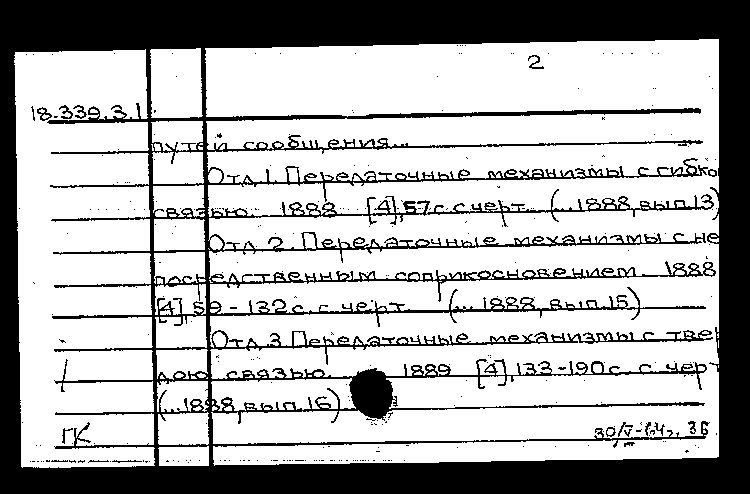 2
18.339.3.1
путей сообщения...
Отд. 1. Передаточные механизмы с гибко
связью. 1888 [4], 57 с. с черт. (...1888, вып. 13)
Отд. 2. Передаточные механизмы с не
посредственным соприкосновением. 1888
[4], 59-132 с. с черт. (...1888, вып. 15)
Отд. 3 Передаточные механизмы с твер
дою связью. 1889 [4], 133-190 с. с черт
(...1888, вып. 16)
ПК
36